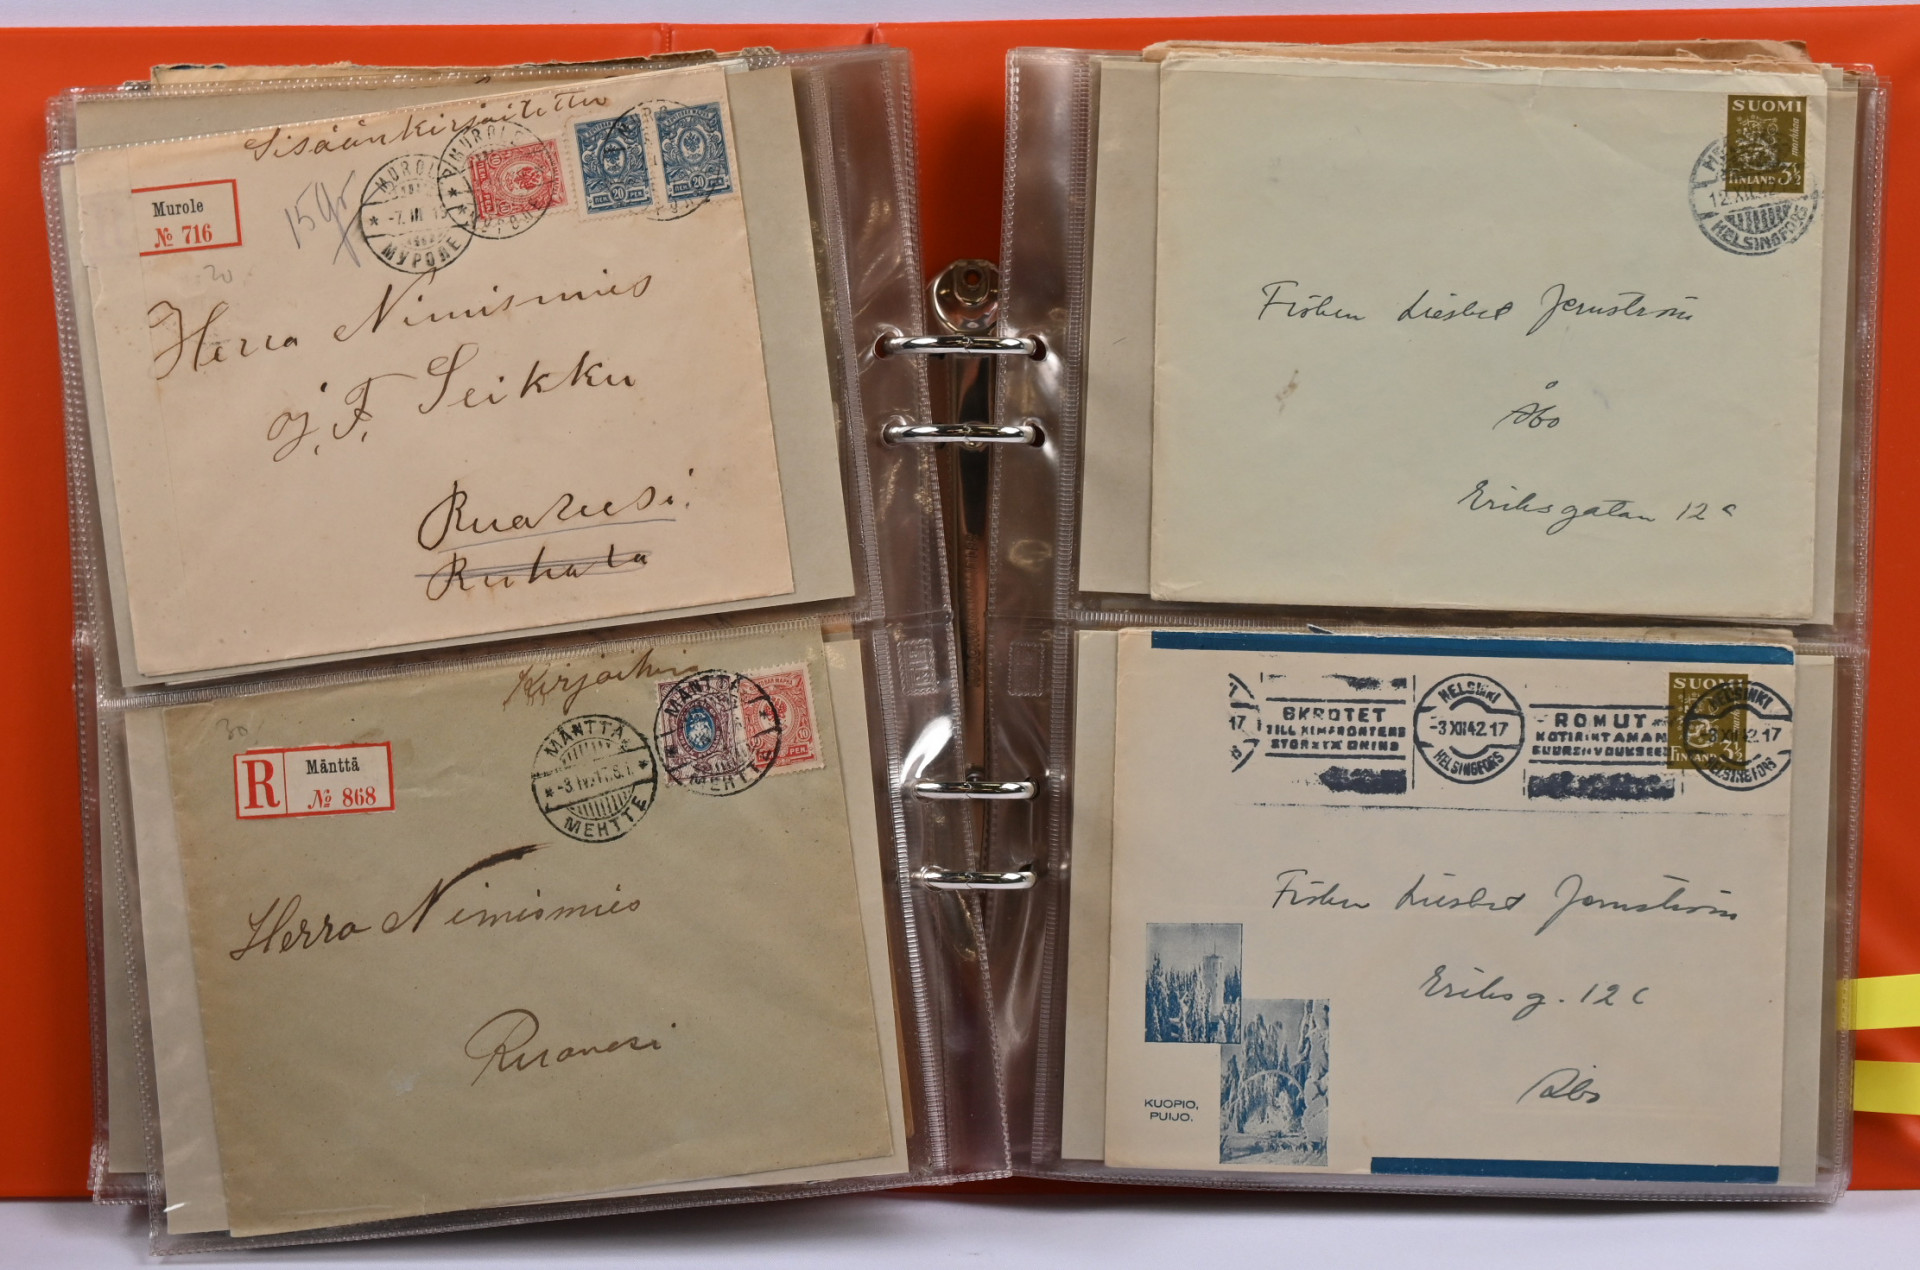 Sisäänkirjoitettu
Murole
№ 716
15 gr
20
MUROLE
-7.III
МУРОЛЕ
20 20
ПЕК. ПЕК.
Herra Nimismies
J. F. Seikku
Ruovesi.
Ruhala
Kirjattu
30
R
Mänttä
№ 868
MÄNTTÄ
-3.IV.17.
МЕНТТЕ
MÄNTTÄ
МЕНТТЕ
10 10
ПЕК.
Herra Nimismies
Ruovesi
SUOMI
markkaa
FINLAND 3½
12.XII.
HELSINGFORS
Fröken Liesbet Jernström
Åbo
Eriksgatan 12 c
SKROTET
TILL HEMFRONTENS
STORSTÄDNING
HELSINKI
-3.XII.42.17
HELSINGFORS
ROMUT
KOTIRINTAMAN
SUURSIIVOUKSEEN
SUOMI
FINLAND 3½
HELSINKI
-3.XII.42.17
HELSINGFORS
Fröken Liesbet Jernström
Eriksg. 12 C
Åbo
KUOPIO,
PUIJO.